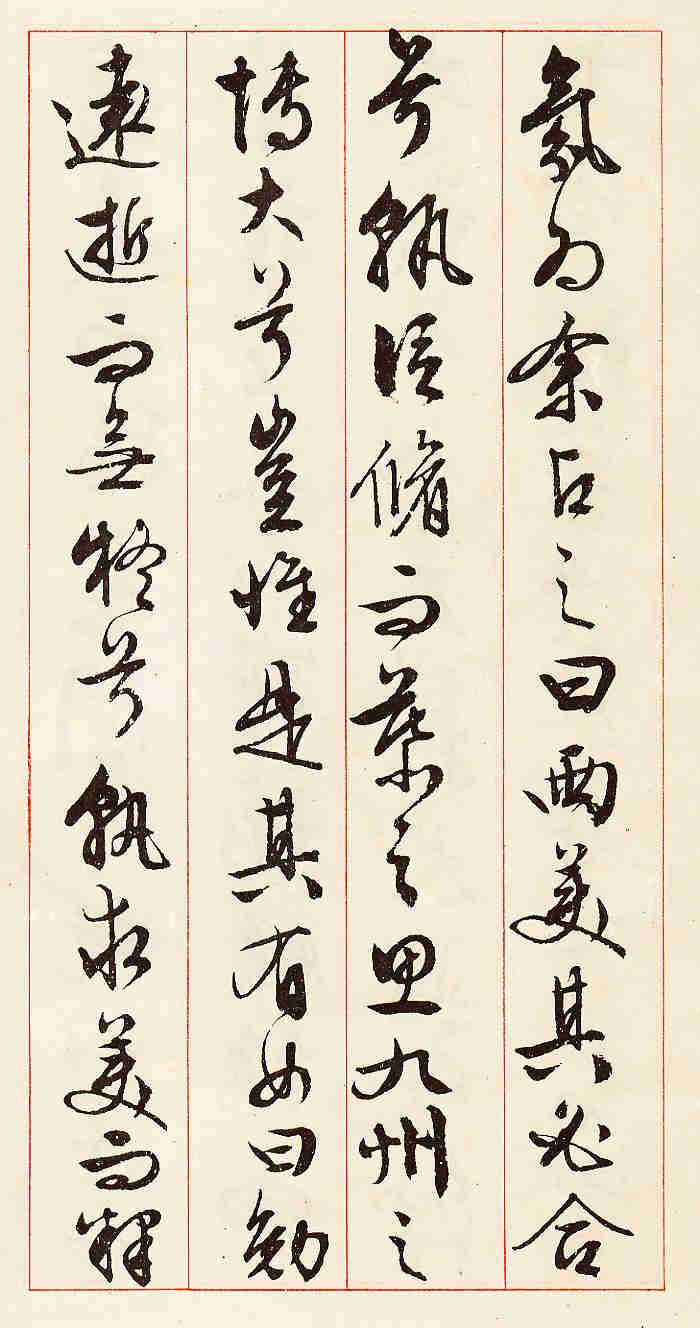 氛為余占之曰兩美其必合
兮孰信脩而慕之思九州之
博大兮豈惟是其有女曰勉
遠逝而無疑兮孰求美而釋